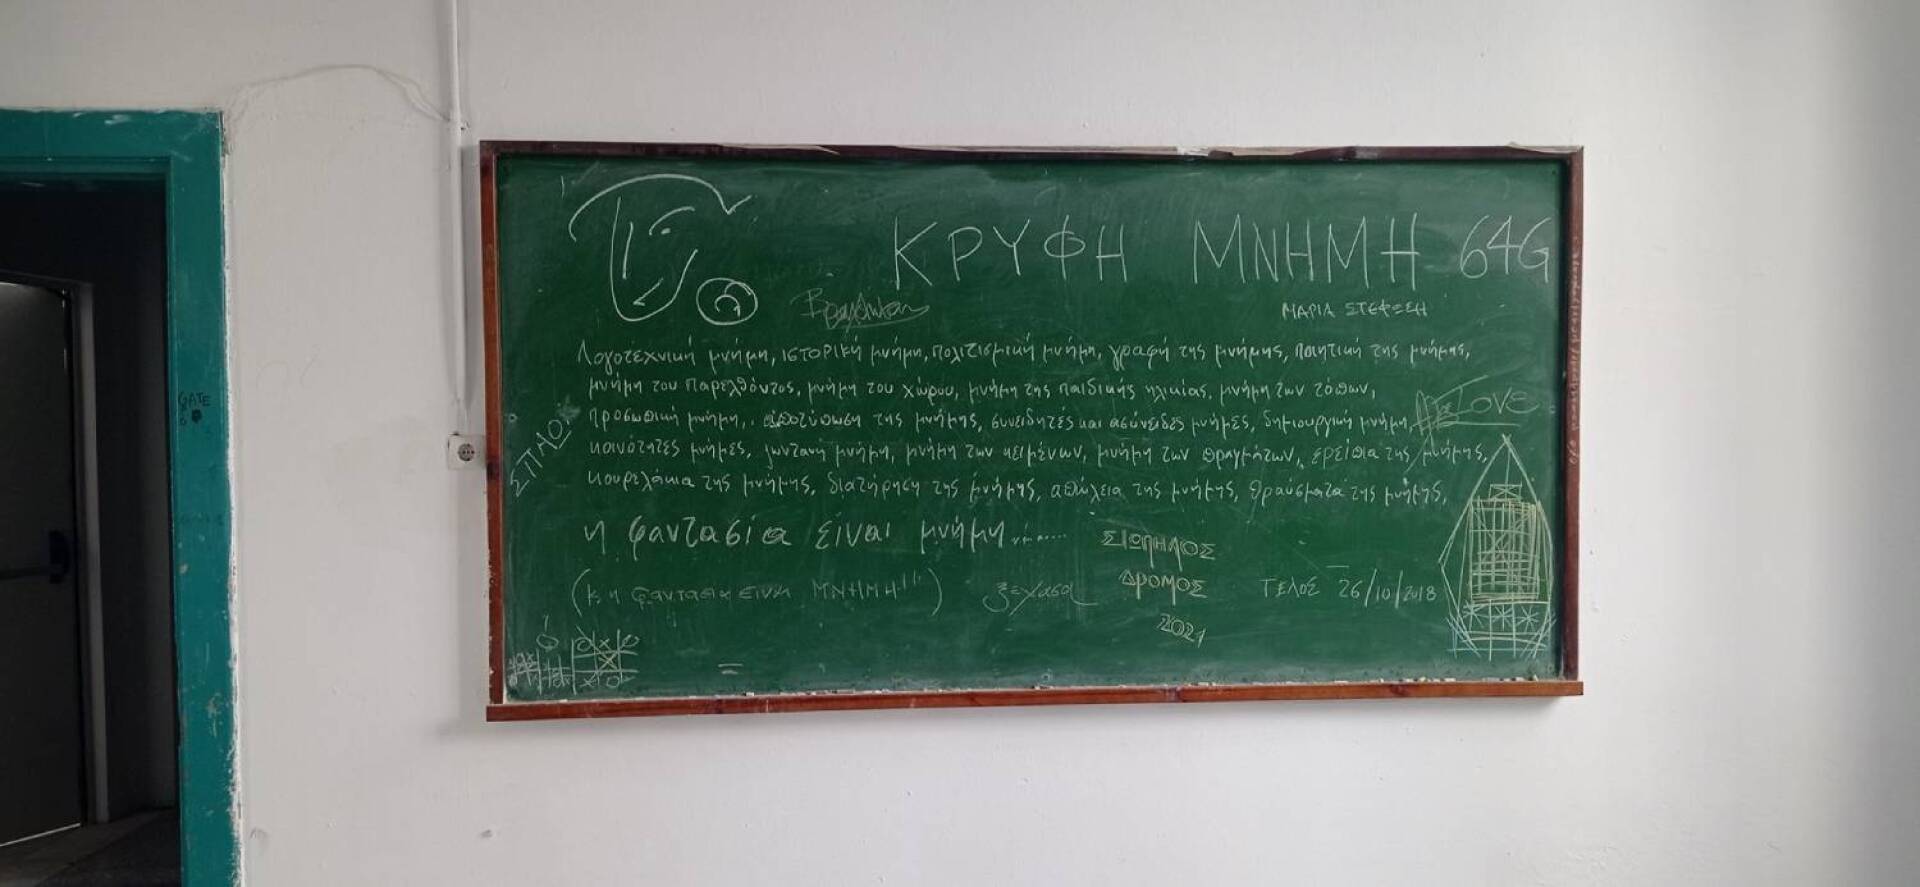 ΚΡΥΦΗ ΜΝΗΜΗ 64G
ΜΑΡΙΑ
Λογοτεχνική μνήμη, ιστορική μνήμη, πολιτισμική μνήμη, γραφή της μνήμης, ποιητική της μνήμης,
μνήμη του παρελθόντος, μνήμη του χώρου, μνήμη της παιδικής ηλικίας, μνήμη των τόπων,
προσωπική μνήμη, αποτύπωση της μνήμης, συνειδητές και ασύνειδες μνήμες, δημιουργική μνήμη,
LOVE
κοινότητες μνήμες, ζωντανή μνήμη, μνήμη των κειμένων, μνήμη των πραγμάτων, ερείπια της μνήμης,
κουρελάκια της μνήμης, διατήρηση της μνήμης, απώλεια της μνήμης, θραύσματα της μνήμης,
η φαντασία είναι μνήμη......
(κ η φαντασια ειναι ΜΝΗΜΗ!!!)
ξεχασα
ΣΙΩΠΗΛΟΣ
ΔΡΟΜΟΣ
2021
ΤΕΛΟΣ 26/10/2018
GATE